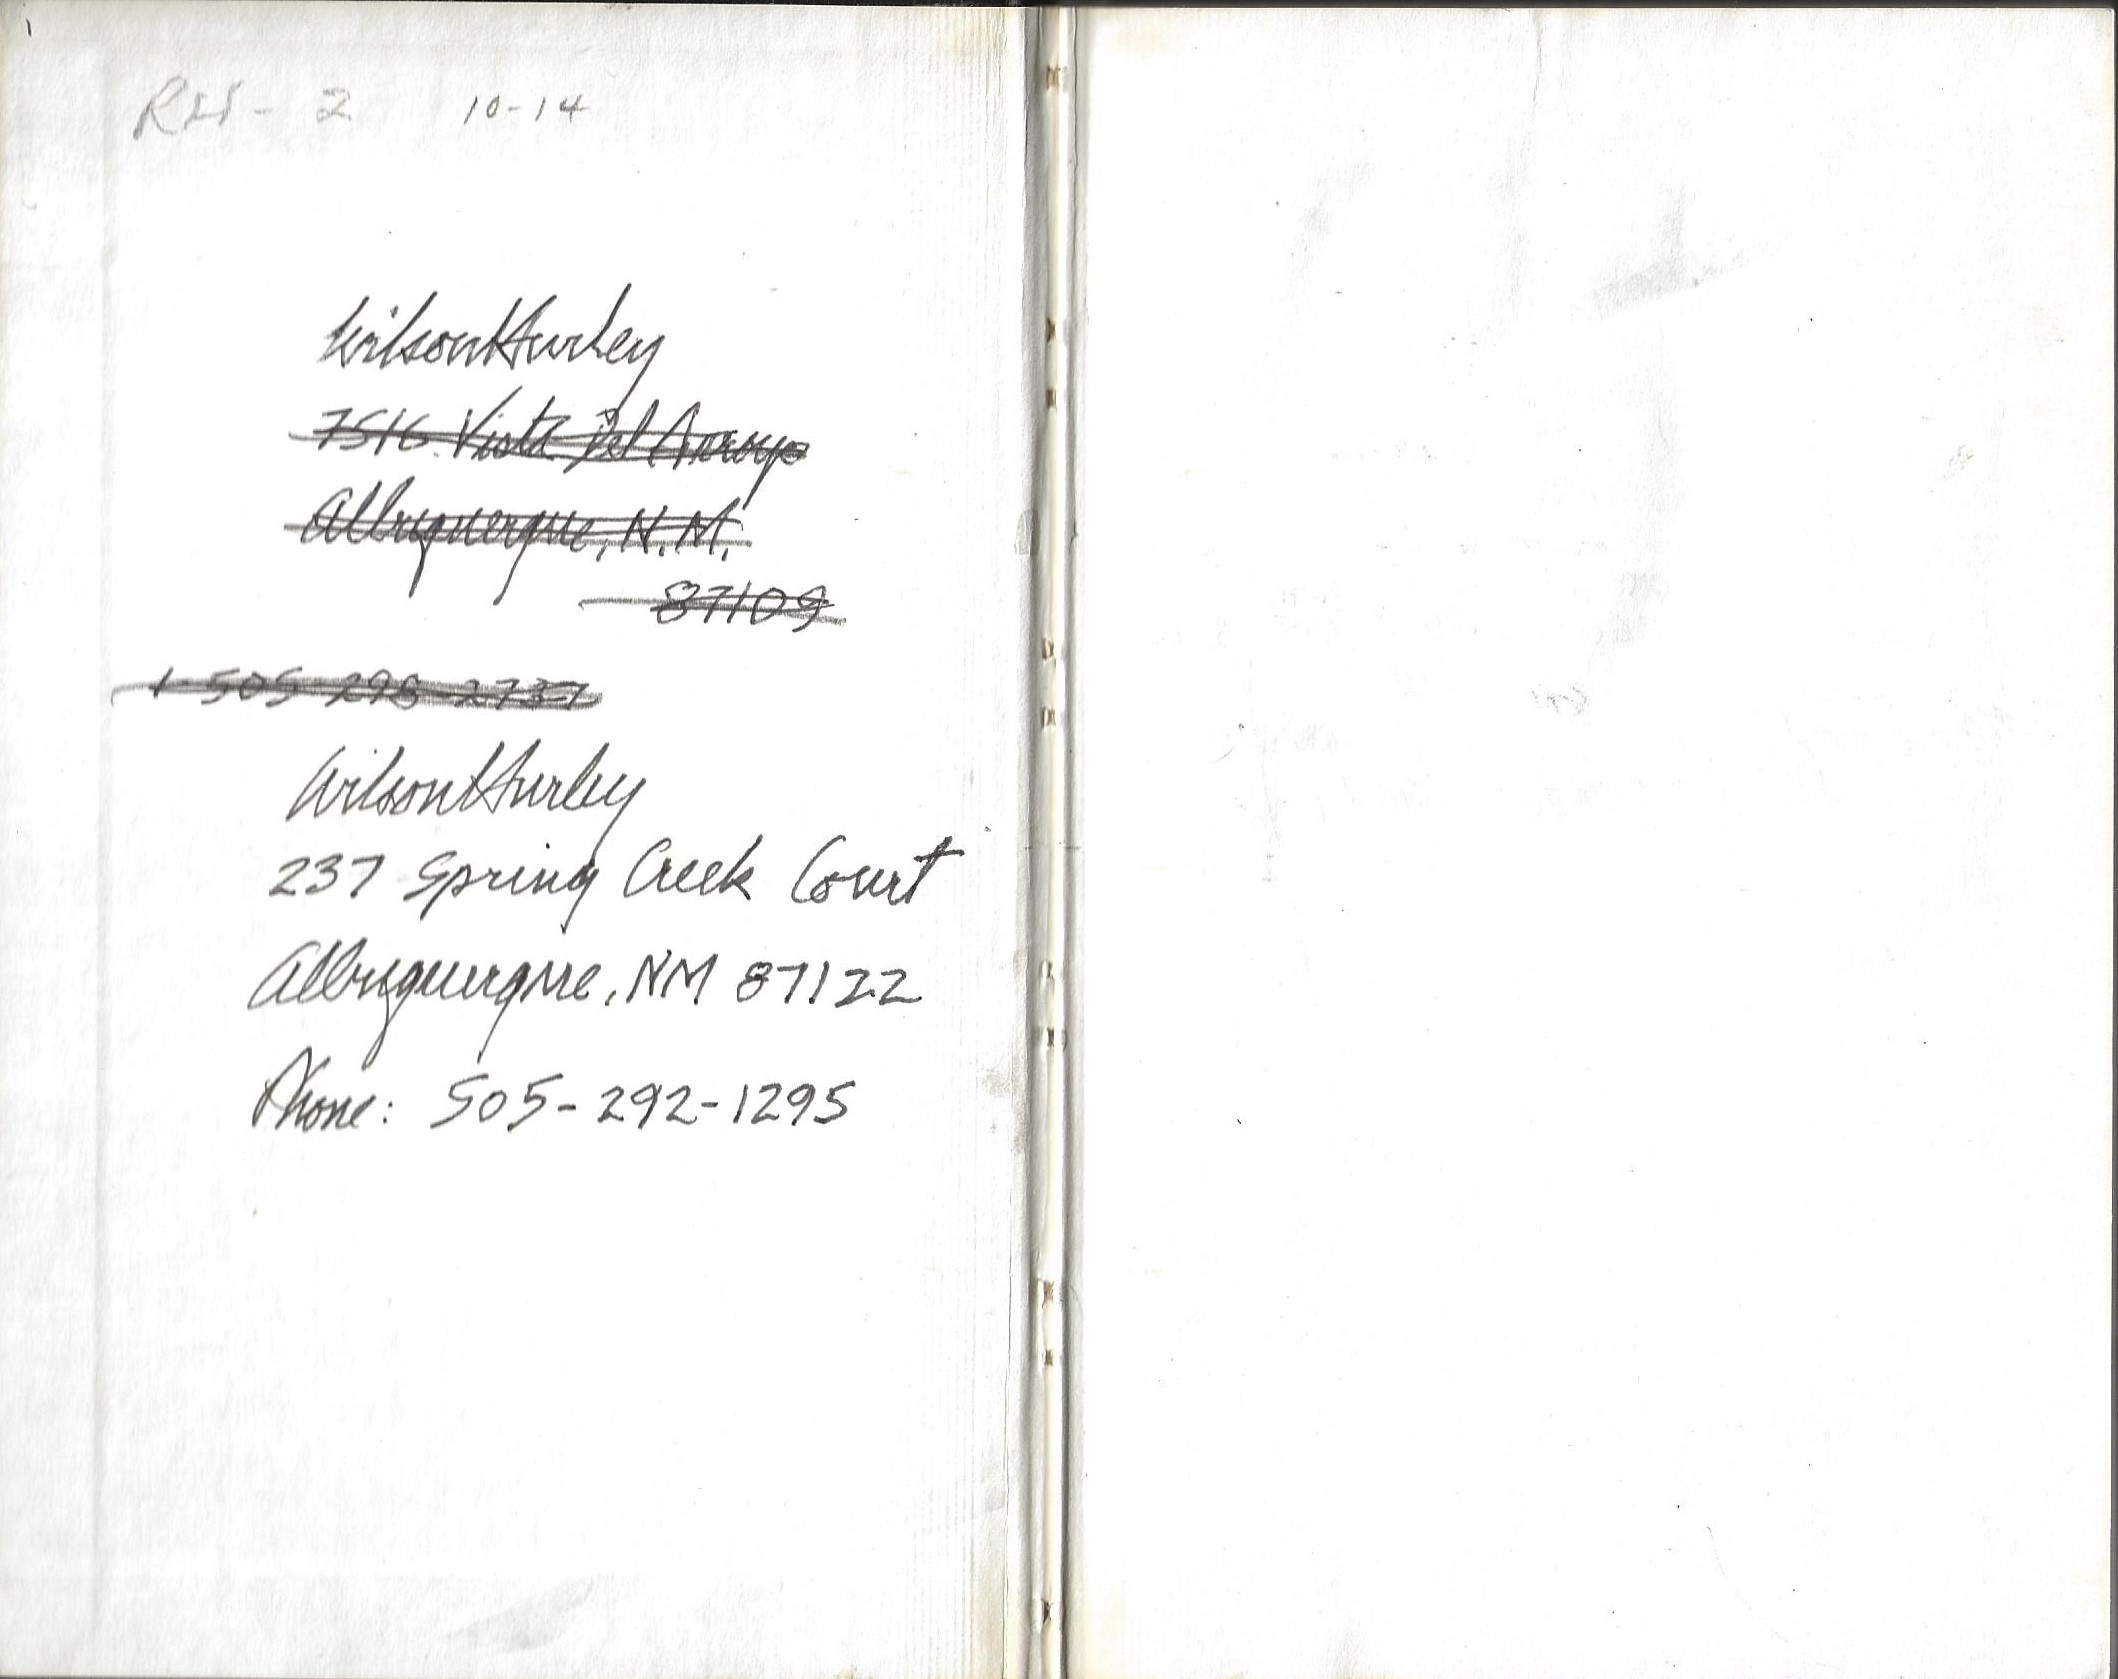 2 10-14
Wilson Hurley
7516 Vista Del Arroyo
Albuquerque, N.M.
87109
1-505-298-2737
Wilson Hurley
237 Spring Creek Court
Albuquerque, NM 87122
Phone: 505-292-1295